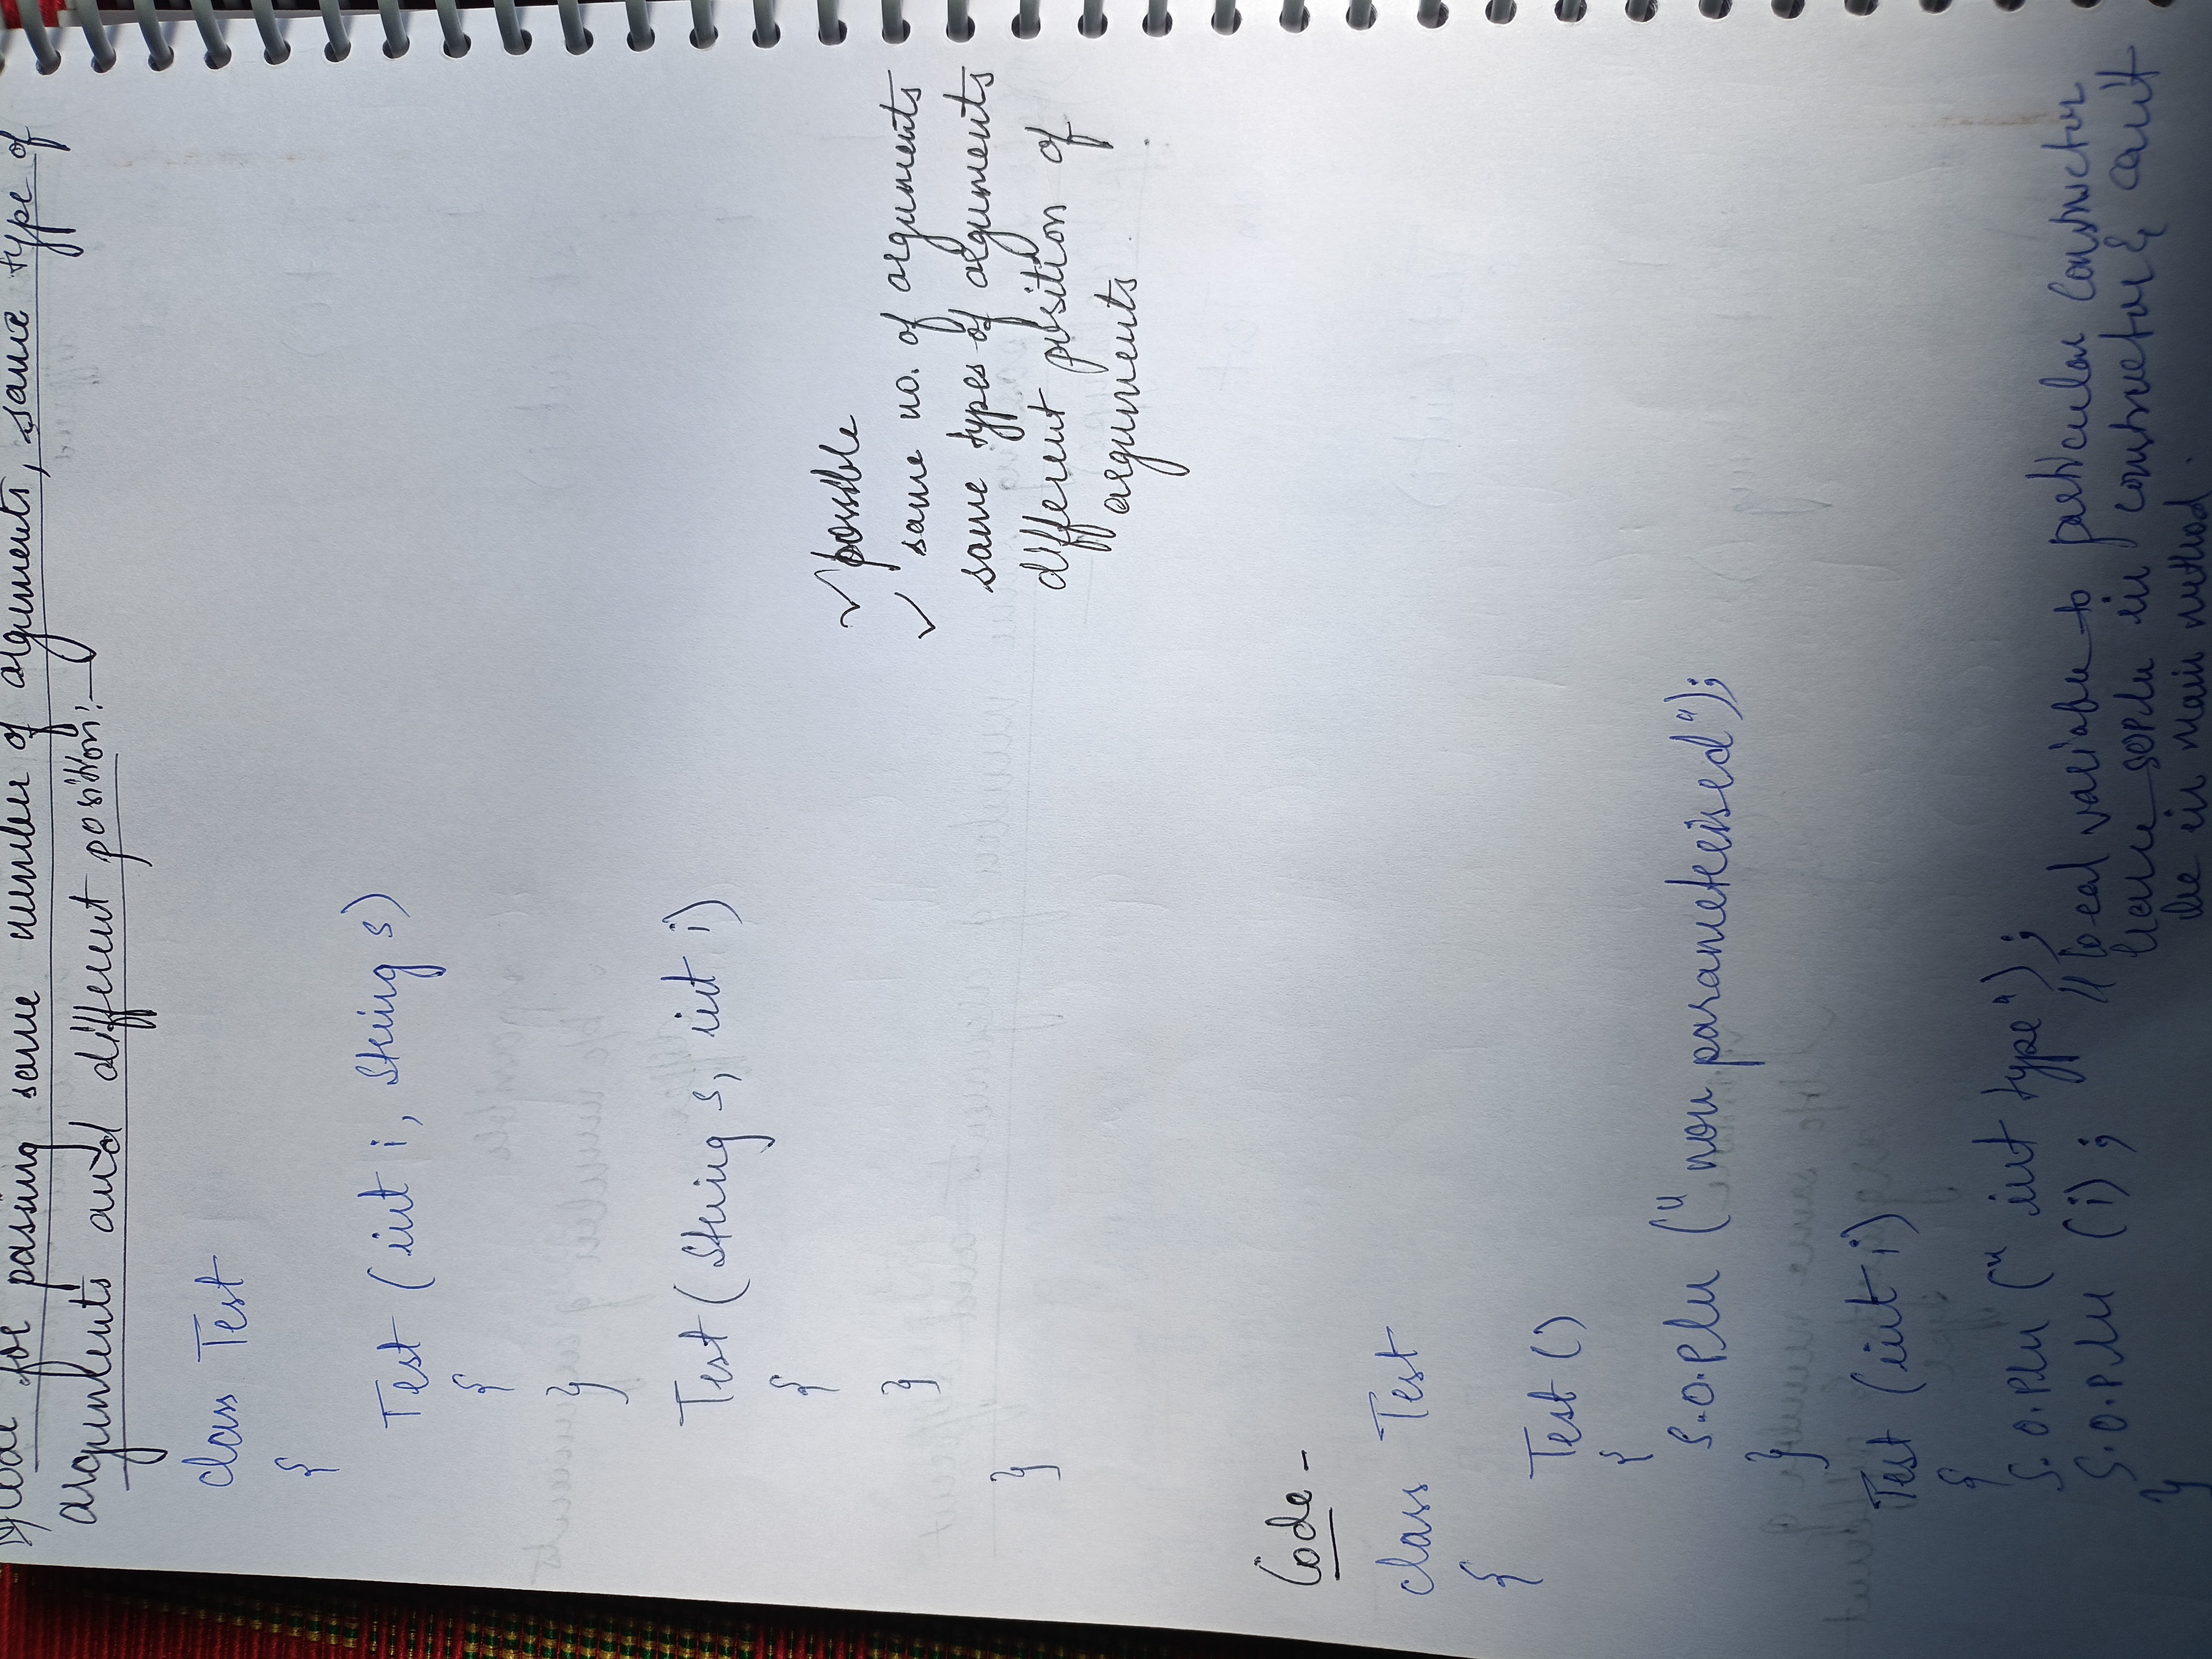 Code for passing same number of arguments, same type of
arguments and different position:-
class Test
{
Test (int i, String s)
{
}
Test (String s, int i)
{
}
}
✓ possible
✓ same no. of arguments
same types of arguments
different position of
arguments
Code -
class Test
{
Test ()
{
S.O.Pln ("non parameterised");
}
Test (int i)
{
S.O.Pln ("int type");
S.O.Pln (i); // local variable to particular constructor
hence SOPln in constructor & can't
be in main method.
}